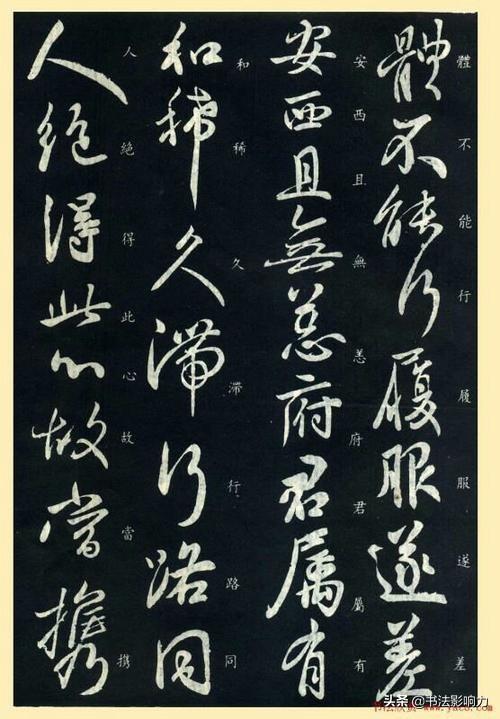 體不能行履服遂差
體不能行履服遂差
安西且無恙府君屬有
安西且無恙府君属有
和稀久滯行路同
和稀久滯行路同
人絕得此心故當携
人絕得此心故當携
头条 @书法影响力